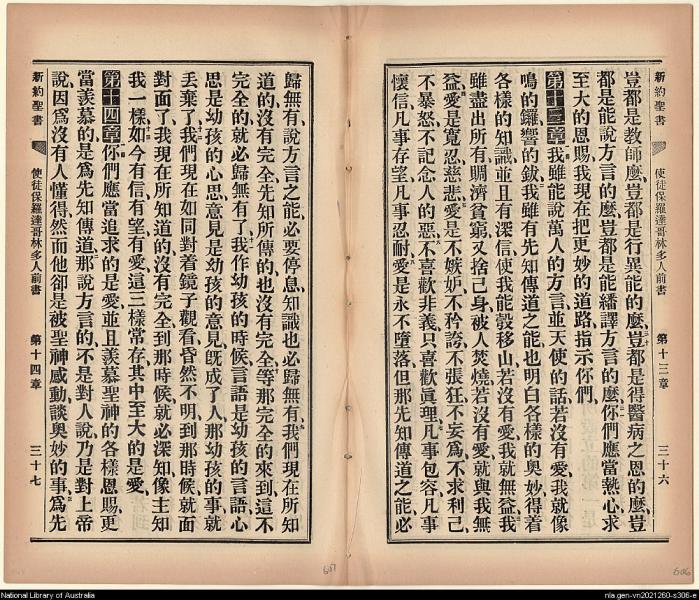 新約聖書
使徒保羅達哥林多人前書
第十三章
三十六
豈都是教師麽、豈都是行異能的麽、豈都是得醫病之恩的麽、豈
都是能說方言的麽、豈都是能繙譯方言的麽、你們應當熱心求
至大的恩賜、我現在把更妙的道路指示你們、
第十三章 我雖能說萬人的方言、並天使的話、若沒有愛、我就像
鳴的鑼、響的鈸、我雖有先知傳道之能、也明白各樣的奧妙、得着
各樣的知識、並且有深信、使我能彀移山、若沒有愛、我就無益、我
雖盡出所有賙濟貧窮、又捨己身被人焚燒、若沒有愛、就與我無
益、愛是寬忍慈悲、愛是不嫉妒、不矜誇、不張狂、不妄爲、不求利己、
不暴怒、不記念人的惡、不喜歡非義、只喜歡眞理、凡事包容、凡事
懷信、凡事存望、凡事忍耐、愛是永不墮落、但那先知傳道之能、必
歸無有、說方言之能、必要停息、知識也必歸無有、我們現在所知
道的、沒有完全、先知所傳的、也沒有完全、等那完全的來到、這不
完全的就必歸無有了、我作幼孩的時候、言語是幼孩的言語、心
思是幼孩的心思、意見是幼孩的意見、旣成了人、那幼孩的事就
丟棄了、我們現在如同對着鏡子觀看、昏然不明、到那時候就面
對面了、我現在所知道的、沒有完全、到那時候、就必深知、像主知
我一樣、如今有信、有望、有愛、這三樣常存、其中至大的是愛、
第十四章 你們應當追求的是愛、並且羨慕聖神的各樣恩賜、更
當羨慕的、是爲先知傳道、那說方言的、不是對人說、乃是對上帝
說、因爲沒有人懂得、然而他卻是被聖神感動、談奧妙的事、爲先
新約聖書
使徒保羅達哥林多人前書
第十四章
三十七
607
606
National Library of Australia
nla.gen-vn2021260-s306-e